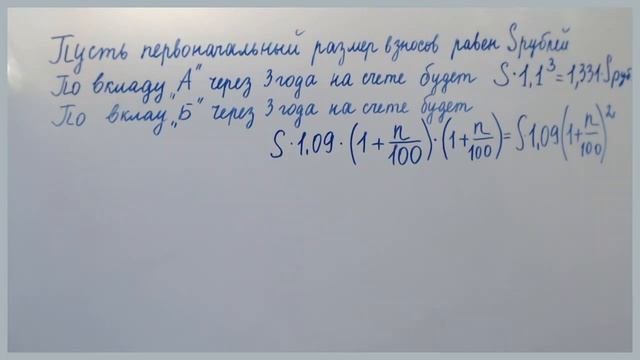 Пусть первоначальный размер взносов равен S рублей
По вкладу „А" через 3 года на счете будет S·1,1³=1,331S руб
По вклау „Б" через 3 года на счете будет
S·1,09·(1+n/100)·(1+n/100)=S1,09(1+n/100)²